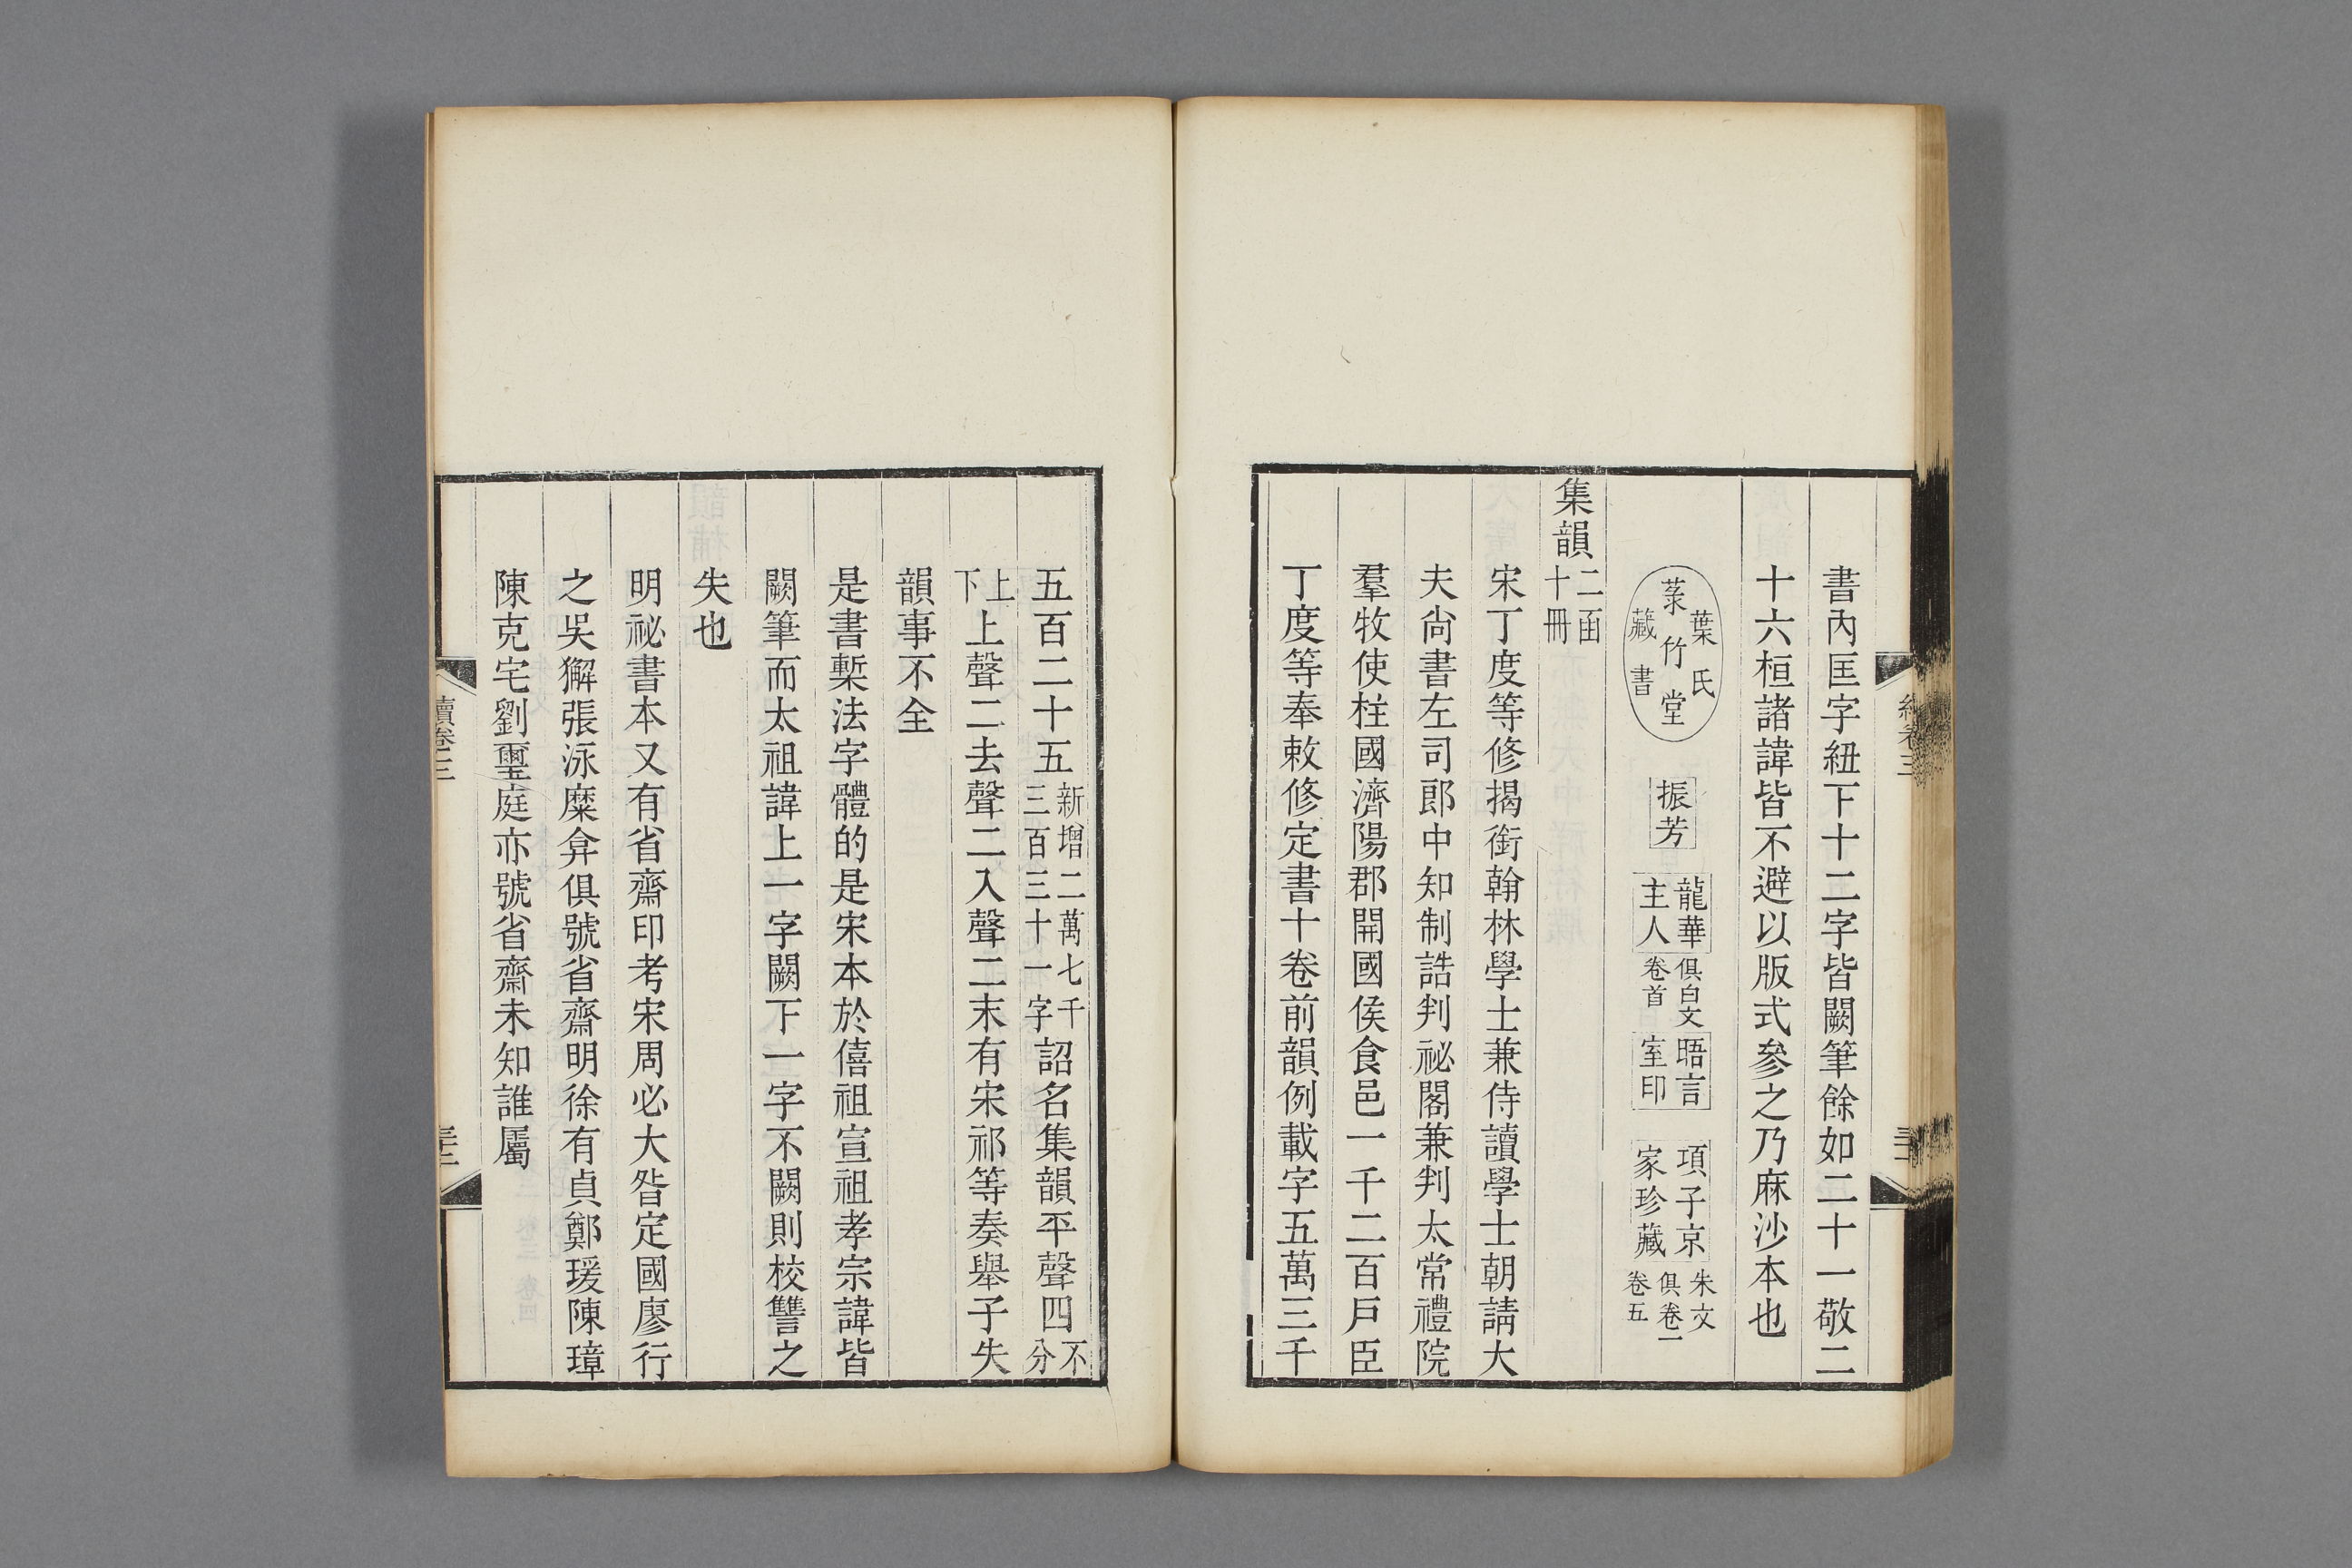 書內匡字紐下十二字皆闕筆餘如二十一敬二
十六桓諸諱皆不避以版式參之乃麻沙本也
葉氏
菉竹堂
藏書
振芳
龍華
主人
俱白文
卷首
晤言
室印
項子京
家珍藏
朱文
俱卷一
卷五
集韻
二函
十冊
宋丁度等修揭銜翰林學士兼侍讀學士朝請大
夫尙書左司郎中知制誥判祕閣兼判太常禮院
羣牧使柱國濟陽郡開國侯食邑一千二百戶臣
丁度等奉敕修定書十卷前韻例載字五萬三千
五百二十五新增二萬七千三百三十一字詔名集韻平聲四不分
上下上聲二去聲二入聲二末有宋祁等奏舉子失
韻事不全
是書槧法字體的是宋本於僖祖宣祖孝宗諱皆
闕筆而太祖諱上一字闕下一字不闕則校讐之
失也
明祕書本又有省齋印考宋周必大昝定國廖行
之吳獬張泳糜弇俱號省齋明徐有貞鄭瑗陳璋
陳克宅劉璽庭亦號省齋未知誰屬
續卷三